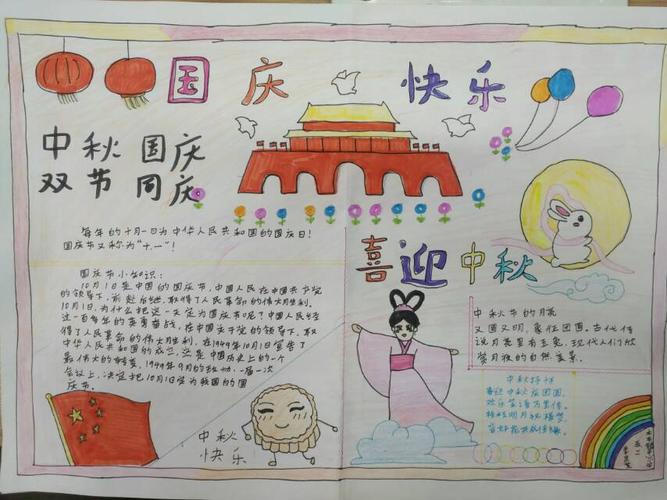 国庆 快乐
中秋 国庆
双节 同庆
每年的十月一日为中华人民共和国的国庆日!
国庆节又称为"十一"!
国庆节小知识:
10月1日是中国的国庆节,中国人民在中国共产党
的领导下,前赴后继,取得了人民革命的伟大胜利。
10月1日,为什么把这一天定为国庆节呢?中国人民经
过一百多年的英勇奋战,在中国共产党的领导下,取
得了人民革命的伟大胜利,在1949年10月1日宣告了
中华人民共和国的成立,这是中国历史上的一个
最伟大的转变,1949年9月的政协 一届一次
会议上,决定把10月1日定为我国的国
庆节。
喜迎中秋
中秋节的月亮
又圆又明,象征团圆。古代传
说月亮里有玉兔,现代人们欣
赏月夜的自然美景。
喜迎中秋庆团圆
中秋
快乐
五二